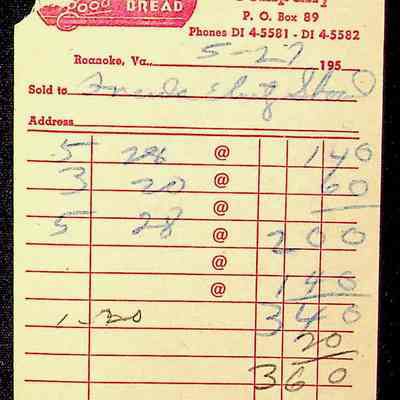 Good BREAD
P. O. Box 89
Phones DI 4-5581 - DI 4-5582
Roanoke, Va., 5-27 195
Sold to
Address
5 28 @ 1 40
3 20 @ 60
5 28 @ 2 00
@
@ 1 40
1-20 3 40
20
3 60